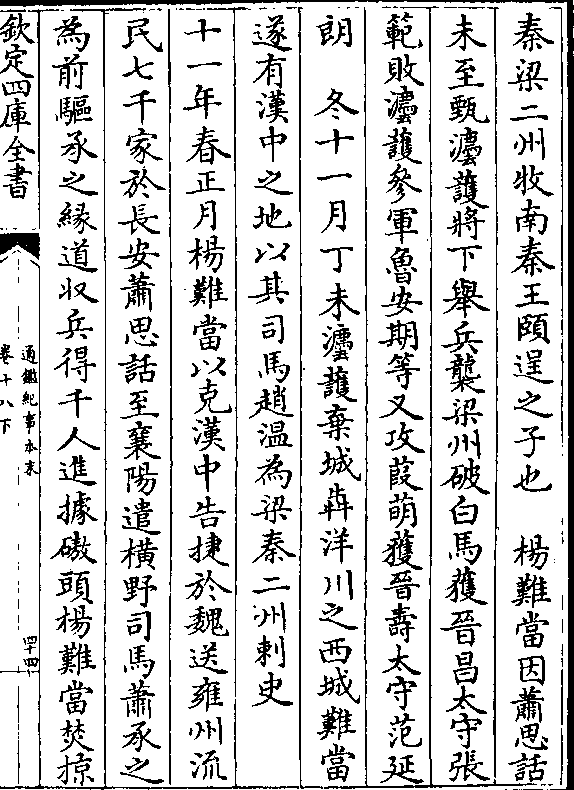 秦梁二州牧南秦王頤逞之子也　楊難當因蕭思話
未至甄灋護將下舉兵襲梁州破白馬獲晉昌太守張
範敗灋護參軍魯安期等又攻葭萌獲晉壽太守范延
朗　冬十一月丁未灋護棄城犇洋川之西城難當
遂有漢中之地以其司馬趙溫為梁秦二州刺史
十一年春正月楊難當以克漢中告捷於魏送雍州流
民七千家於長安蕭思話至襄陽遣橫野司馬蕭承之
為前驅承之緣道收兵得千人進據磝頭楊難當焚掠
欽定四庫全書
通鑑紀事本末
卷十八下
四十四